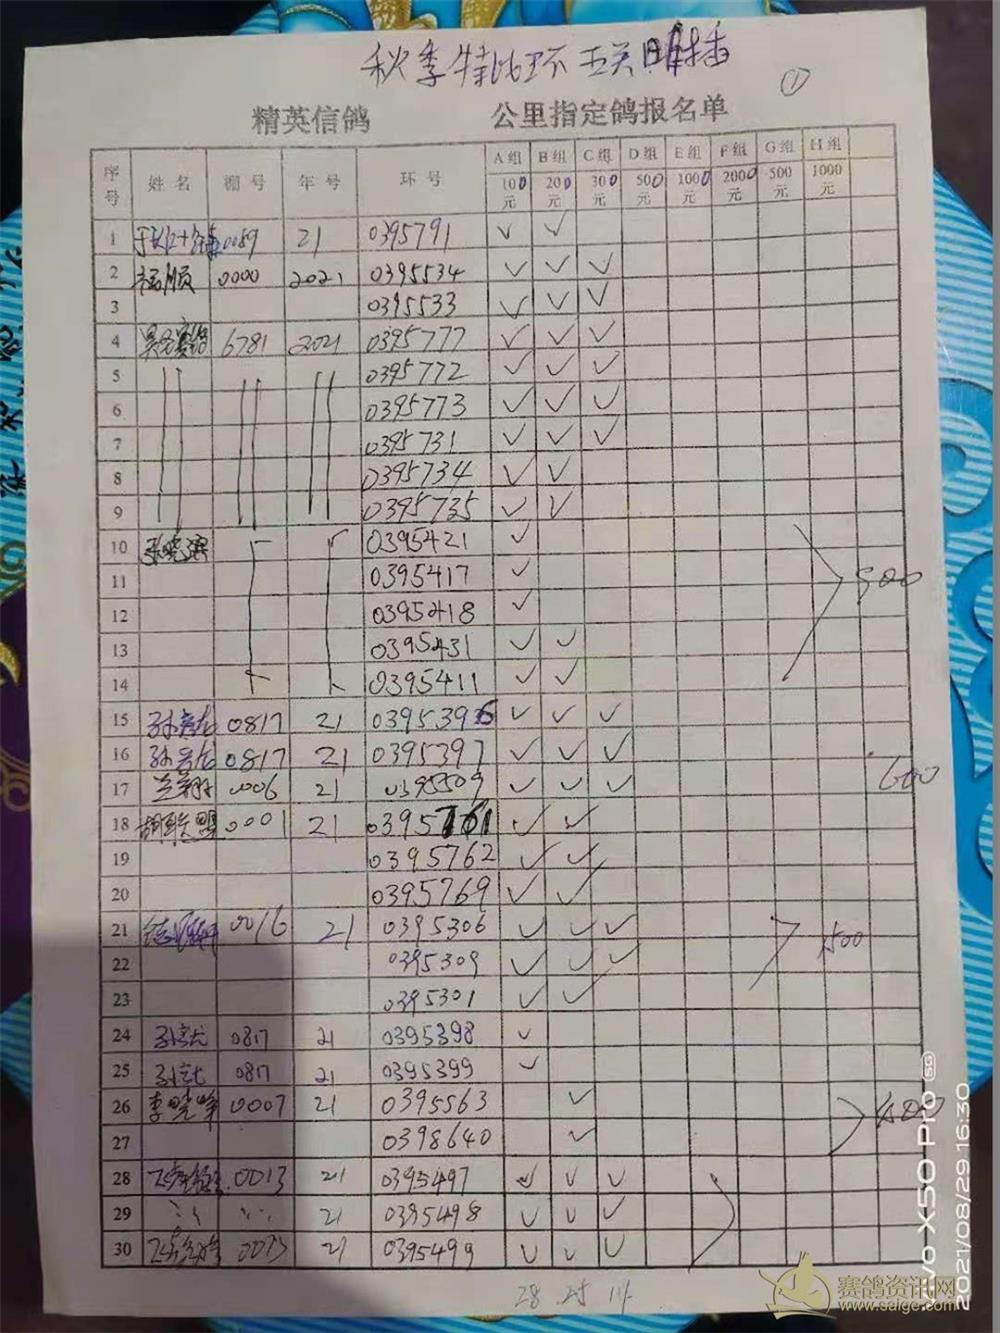 秋季特比环 五关 明插
①
精英信鸽 公里指定鸽报名单
序号 姓名 棚号 年号 环号 A组 B组 C组 D组 E组 F组 G组 H组
100元 200元 300元 500元 1000元 2000元 500元 1000元
1 0089 21 0395791 ✓ ✓
2 福顺 0000 2021 0395534 ✓ ✓ ✓
3 0395533 ✓ ✓ ✓
4 6781 2021 0395777 ✓ ✓ ✓
5 0395772 ✓ ✓ ✓
6 0395773 ✓ ✓ ✓
7 0395731 ✓ ✓ ✓
8 0395734 ✓ ✓
9 0395735 ✓ ✓
10 0395421 ✓
11 0395417 ✓
12 0395418 ✓
13 0395431 ✓ ✓
14 0395411 ✓ ✓
15 0817 21 0395396 ✓ ✓ ✓
16 0817 21 0395397 ✓ ✓ ✓
600
17 兰翔 0006 21 0395509 ✓ ✓ ✓
18 胡联盟 0001 21 0395761 ✓ ✓
19 0395762 ✓ ✓
20 0395769 ✓ ✓
21 0016 21 0395306 ✓ ✓ ✓
1500
22 0395309 ✓ ✓ ✓
23 0395301 ✓ ✓
24 0817 21 0395398 ✓
25 0817 21 0395399 ✓
26 李晓峰 0007 21 0395563 ✓
27 0398640 ✓
28 0013 21 0395497 ✓ ✓ ✓
29 21 0395498 ✓ ✓ ✓
30 0013 21 0395499 ✓ ✓ ✓
28 25 14
vivo X50 Pro 5G
2021/08/29 16:30
赛鸽资讯网
www.saige.com